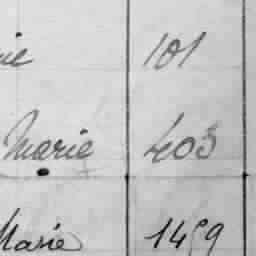 101
Marie 403
Marie 1459